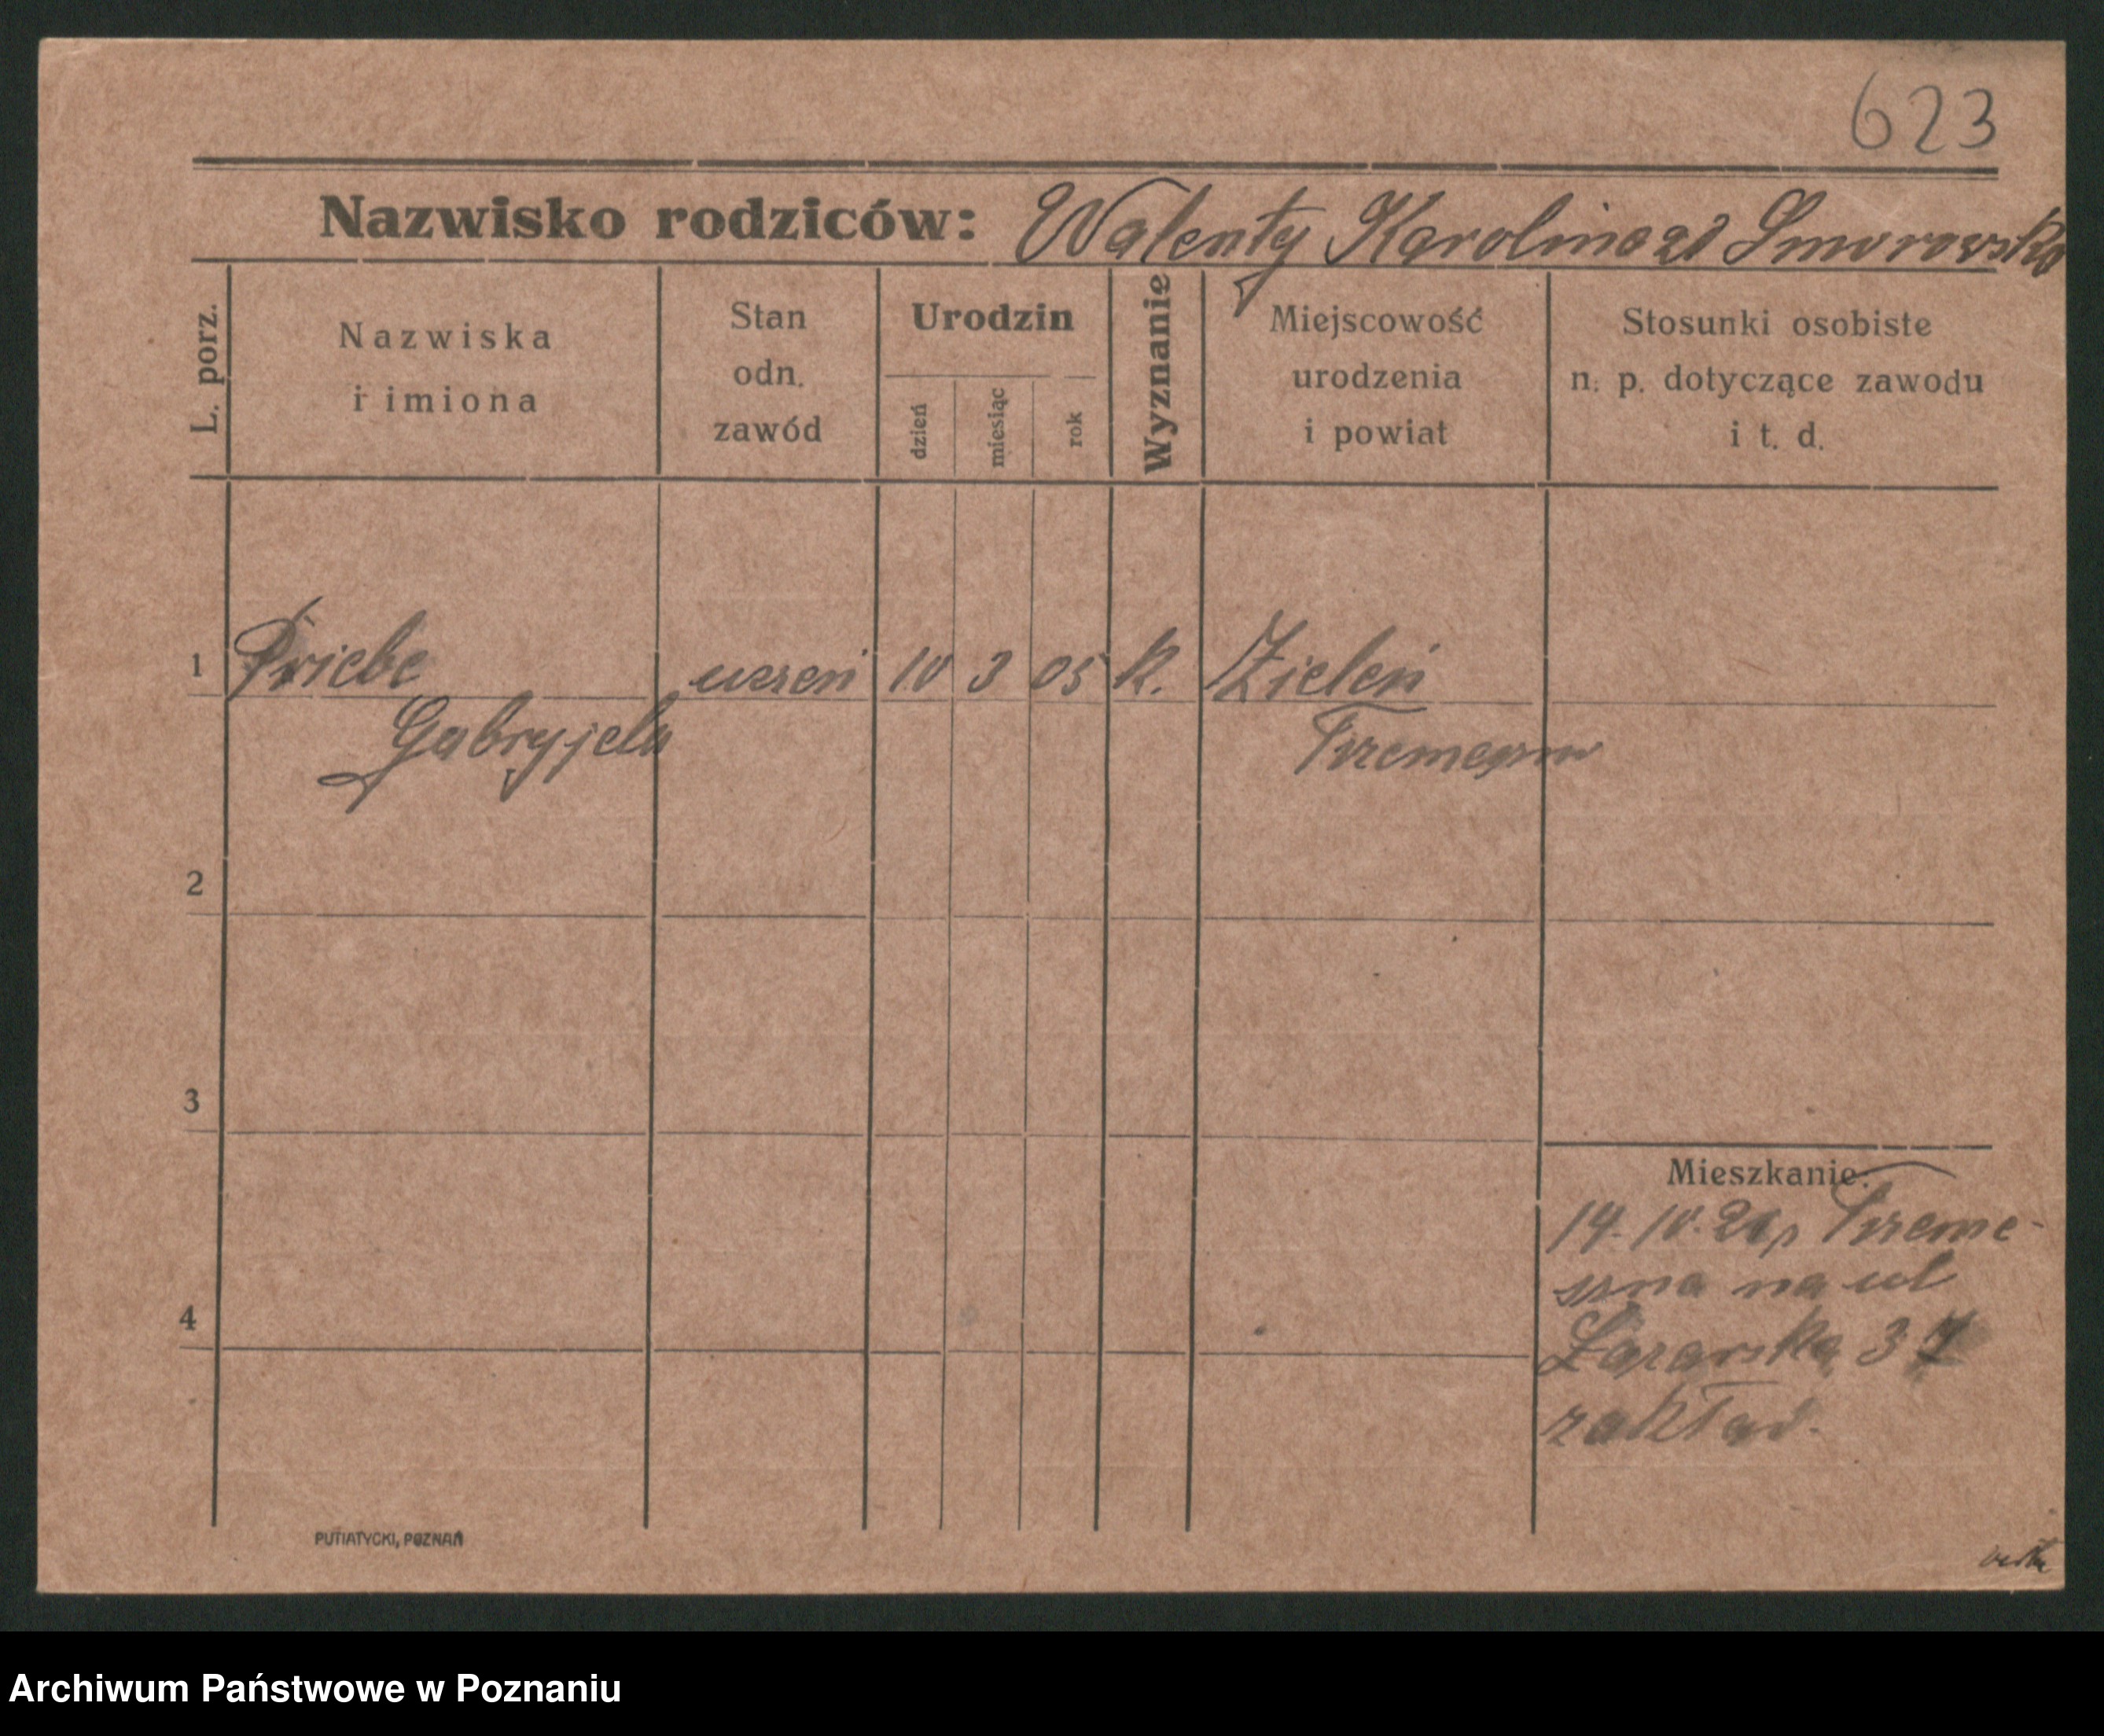 623
Nazwisko rodziców: Walenty Karolina zd Smorowska
L. porz.
Nazwiska
i imiona
Stan
odn.
zawód
Urodzin
dzień
miesiąc
rok
Wyznanie
Miejscowość
urodzenia
i powiat
Stosunki osobiste
n. p. dotyczące zawodu
i t. d.
1 Priebe uczeń 10 3 05 k. Zieleń
Gabryjela
2
3
4
Mieszkanie:
14. 10. Trzeme-
szna na ul
Łazarska 3
zakład.
PUTIATYCKI, POZNAŃ
Archiwum Państwowe w Poznaniu